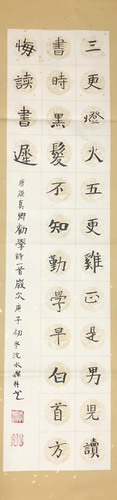 三更燈火五更雞正是男兒讀
書時黑髮不知勤學早白首方
悔讀書遲
唐顏真卿勸學詩一首歲次庚子初冬沈水